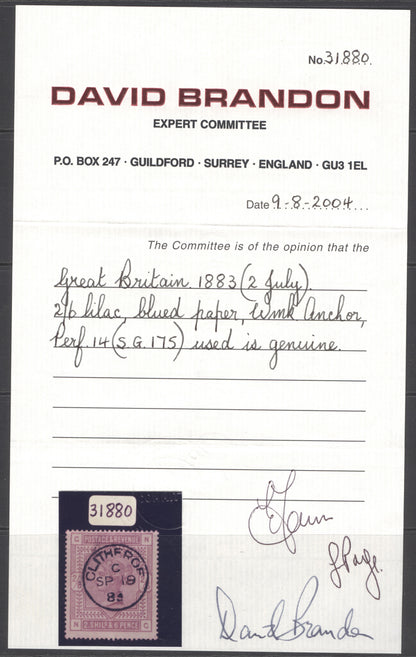 No. 31880
DAVID BRANDON
EXPERT COMMITTEE
P.O. BOX 247 · GUILDFORD · SURREY · ENGLAND · GU3 1EL
Date 9-8-2004
The Committee is of the opinion that the
Great Britain 1883 (2 July).
2/6 lilac, blued paper, Wmk Anchor,
Perf. 14 (S.G. 175) used is genuine.
31880
C N
POSTAGE & REVENUE
CLITHEROE
C
SP 19
84
2 SHILGS & 6 PENCE
N C
David Brandon